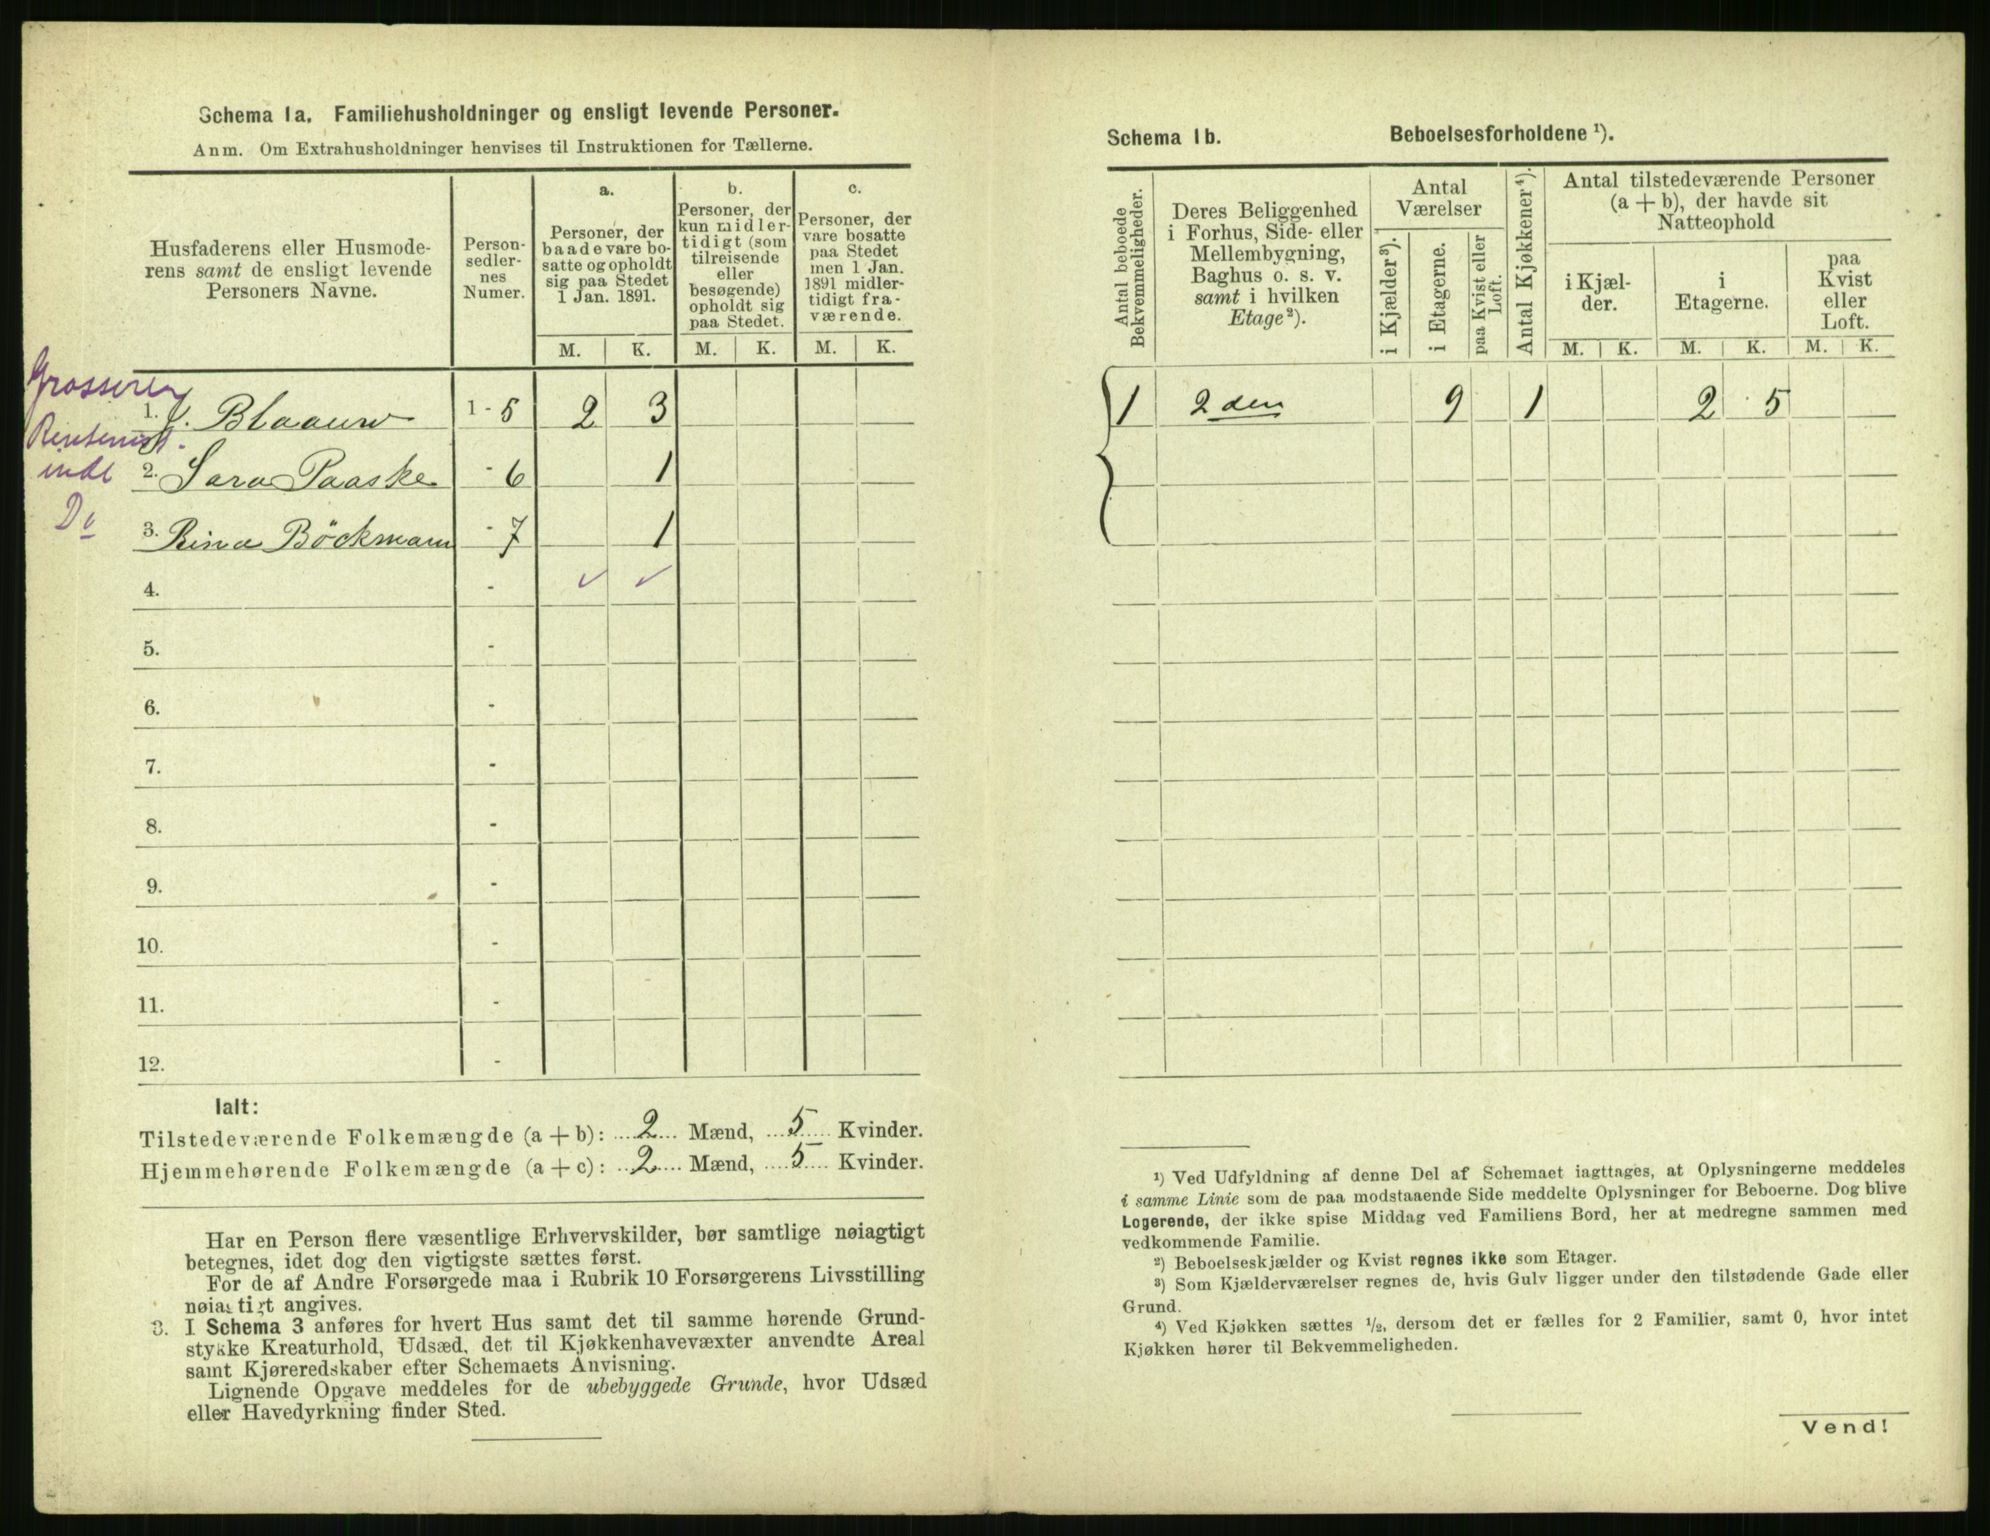 Schema 1a. Familiehusholdninger og ensligt levende Personer.
Anm. Om Extrahusholdninger henvises til Instruktionen for Tællerne.
Husfaderens eller Husmode-
rens samt de ensligt levende
Personers Navne.
Person-
sedler-
nes
Numer.
a.
Personer, der
baade vare bo-
satte og opholdt
sig paa Stedet
1 Jan. 1891.
b.
Personer, der
kun midler-
tidigt (som
tilreisende
eller
besøgende)
opholdt sig
paa Stedet.
c.
Personer, der
vare bosatte
paa Stedet
men 1 Jan.
1891 midler-
tidigt fra-
værende.
M. K. M. K. M. K.
Grosserer
1. J. Blaauw 1 - 5 2 3
Rentenist-
inde
2. Sara Paaske - 6 1
Do
3. Rina Böckmann - 7 1
4. - ✓ ✓
5. -
6. -
7. -
8. -
9. -
10. -
11. -
12. -
Ialt:
Tilstedeværende Folkemængde (a + b): 2 Mænd, 5 Kvinder.
Hjemmehørende Folkemængde (a + c): 2 Mænd, 5 Kvinder.
Har en Person flere væsentlige Erhvervskilder, bør samtlige nøiagtigt
betegnes, idet dog den vigtigste sættes først.
For de af Andre Forsørgede maa i Rubrik 10 Forsørgerens Livsstilling
nøiagtigt angives.
3. I Schema 3 anføres for hvert Hus samt det til samme hørende Grund-
stykke Kreaturhold, Udsæd, det til Kjøkkenhavevæxter anvendte Areal
samt Kjøreredskaber efter Schemaets Anvisning.
Lignende Opgave meddeles for de ubebyggede Grunde, hvor Udsæd
eller Havedyrkning finder Sted.
Schema 1b. Beboelsesforholdene ¹).
Antal beboede
Bekvemmeligheder.
Deres Beliggenhed
i Forhus, Side- eller
Mellembygning,
Baghus o. s. v.
samt i hvilken
Etage ²).
Antal
Værelser
i Kjælder ³).
i Etagerne.
paa Kvist eller
Loft.
Antal Kjøkkener ⁴).
Antal tilstedeværende Personer
(a + b), der havde sit
Natteophold
i Kjæl-
der.
i
Etagerne.
paa
Kvist
eller
Loft.
M. K. M. K. M. K.
1 2 den 9 1 2 5
¹) Ved Udfyldning af denne Del af Schemaet iagttages, at Oplysningerne meddeles
i samme Linie som de paa modstaaende Side meddelte Oplysninger for Beboerne. Dog blive
Logerende, der ikke spise Middag ved Familiens Bord, her at medregne sammen med
vedkommende Familie.
²) Beboelseskjælder og Kvist regnes ikke som Etager.
³) Som Kjælderværelser regnes de, hvis Gulv ligger under den tilstødende Gade eller
Grund.
⁴) Ved Kjøkken sættes ½, dersom det er fælles for 2 Familier, samt 0, hvor intet
Kjøkken hører til Bekvemmeligheden.
Vend!